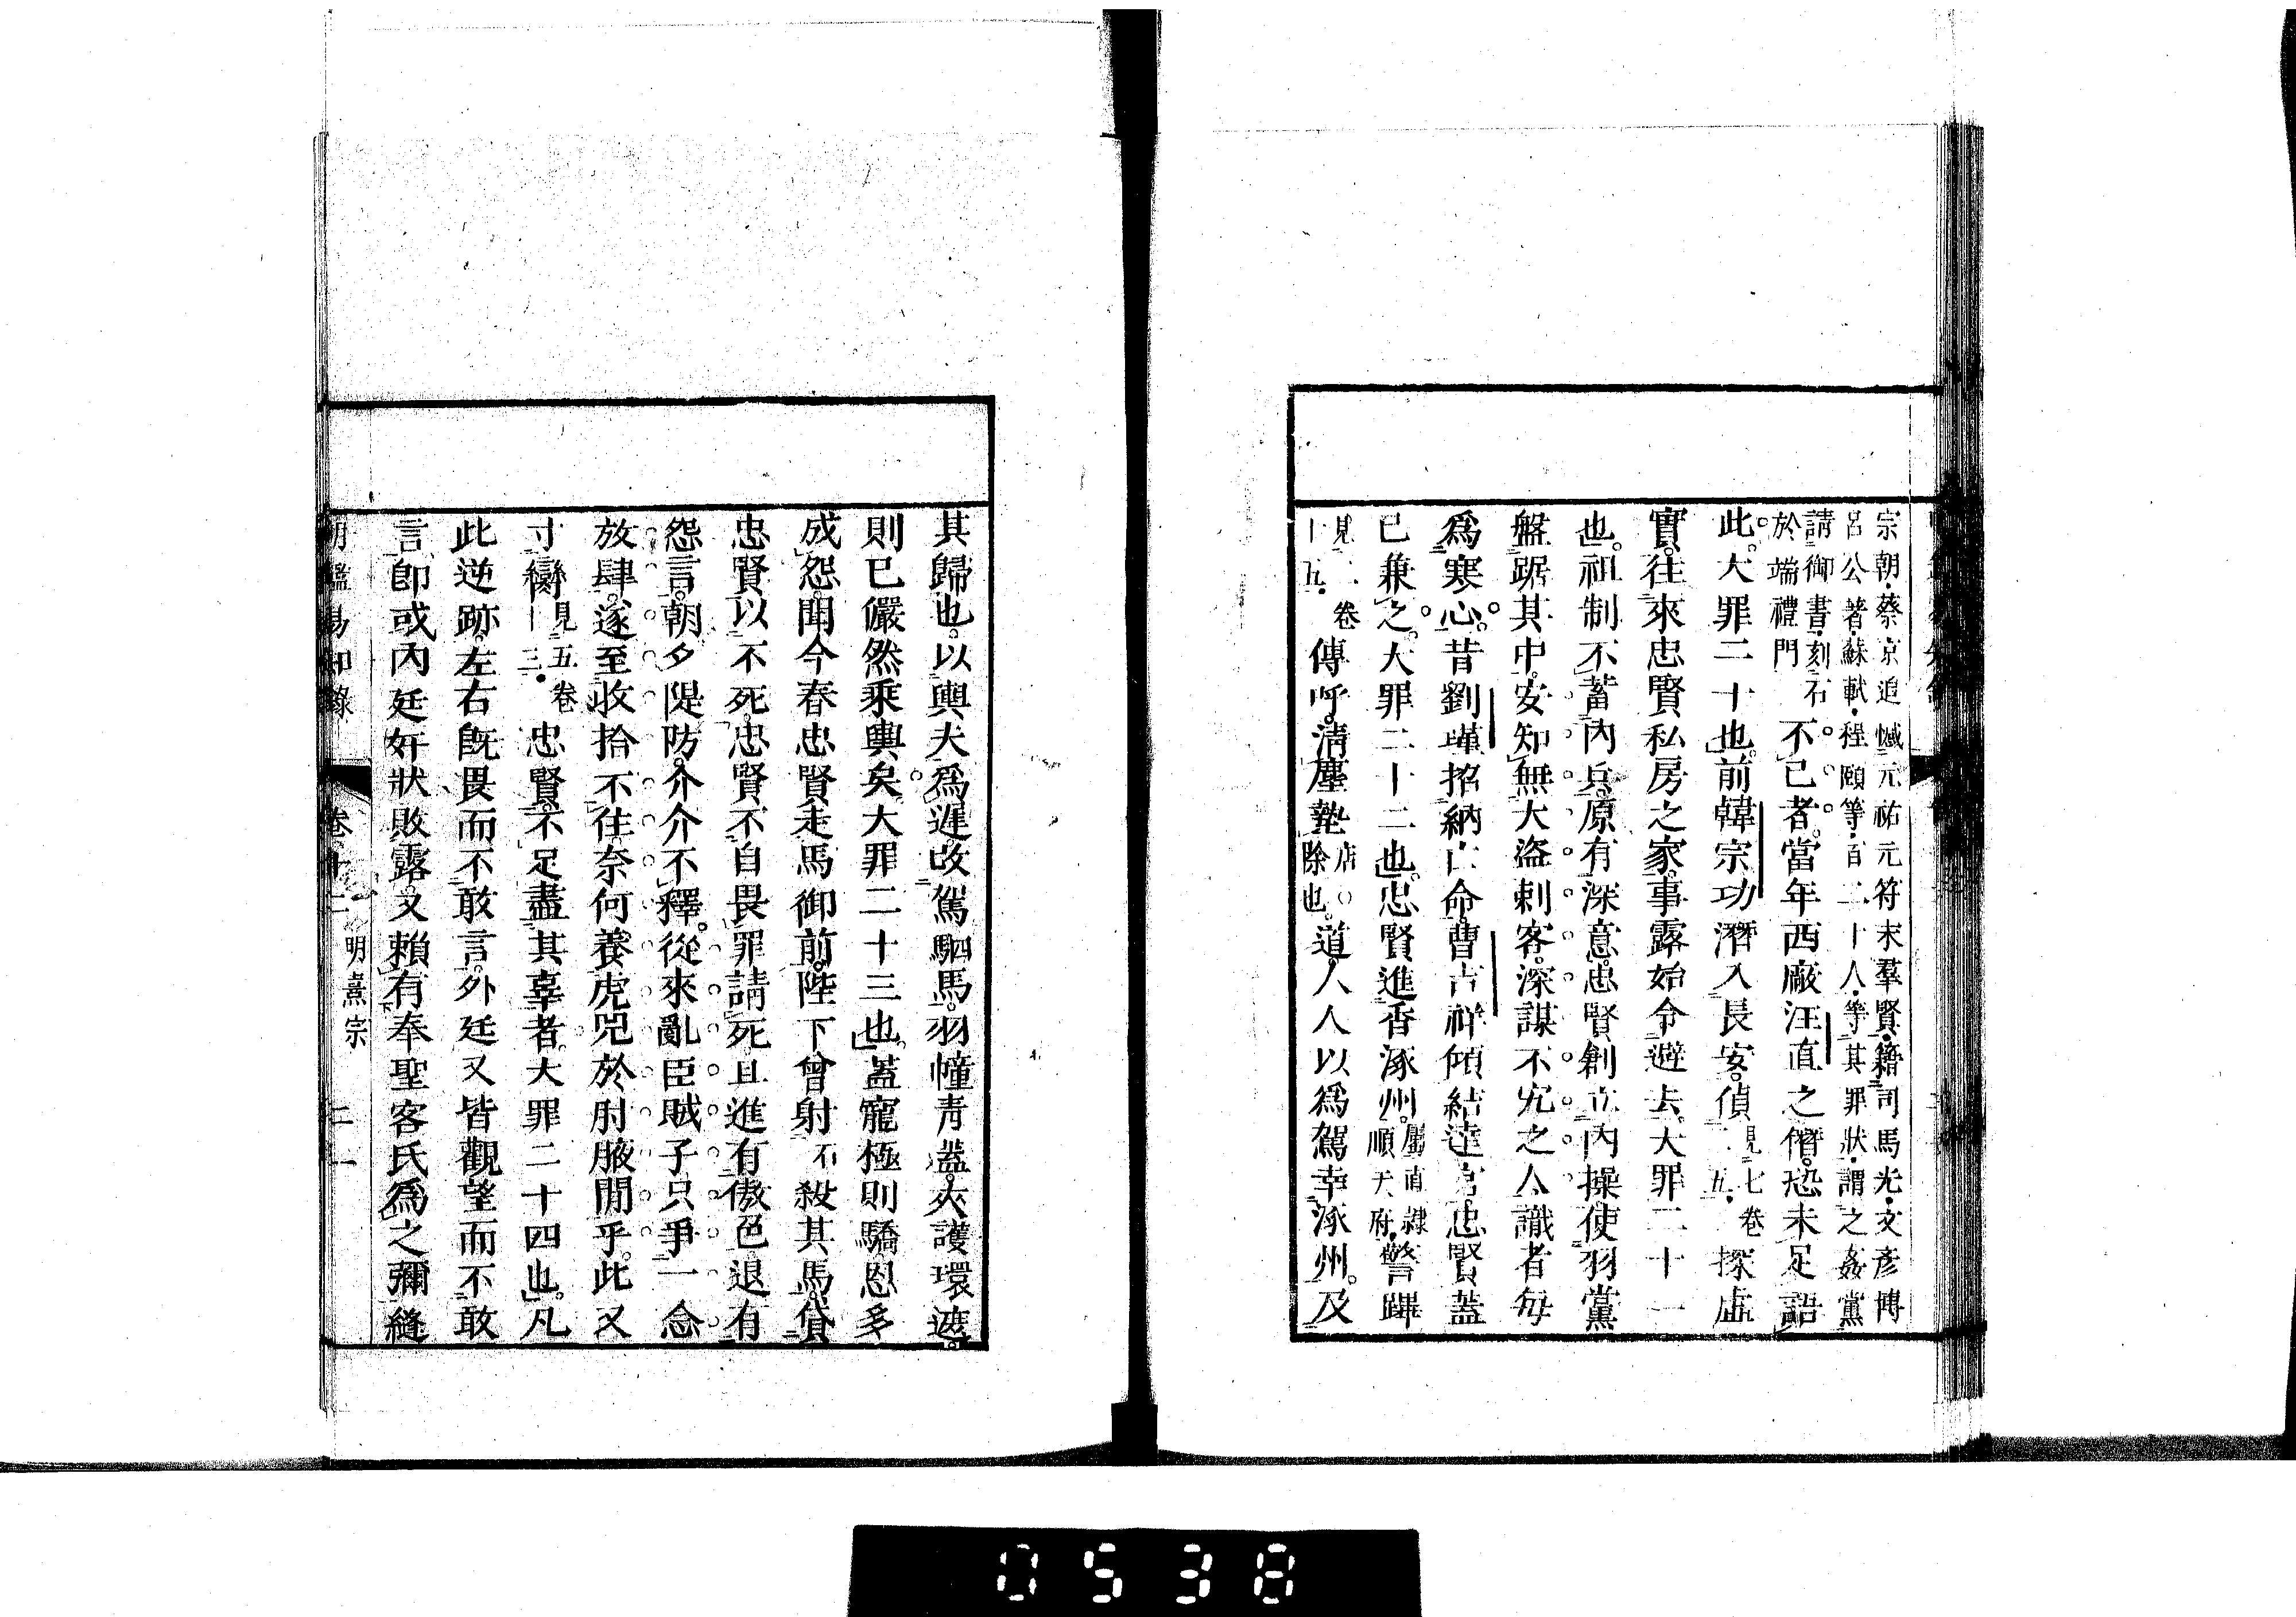 宗朝蔡京追憾元祐元符末羣賢籍司馬光文彥博
呂公著蘇軾程頤等百二十人等其罪狀謂之姦黨
請御書刻石
於端禮門
不已者當年西廠汪直之僭恐未足語
此大罪二十也前韓宗功潛入長安偵
見七卷
五
探虛
實往來忠賢私房之家事露始令避去大罪二十一
也祖制不蓄內兵原有深意忠賢創立內操使羽黨
盤踞其中安知無大盜刺客深謀不宄之人識者每
爲寒心昔劉瑾招納亡命曹吉祥傾結達官忠賢蓋
已兼之大罪二十二也忠賢進香涿州
屬直隸
順天府
警蹕
見二卷
十五
傳呼淸塵墊
除也
道人人以爲駕幸涿州及
其歸也以輿夫爲遲改駕駟馬羽幢靑蓋夾護環遮
則已儼然乘輿矣大罪二十三也蓋寵極則驕恩多
成怨聞今春忠賢走馬御前陛下曾射殺其馬貸
忠賢以不死忠賢不自畏罪請死且進有傲色退有
怨言朝夕隄防介介不釋從來亂臣賊子只爭一念
放肆遂至收拾不住奈何養虎兕於肘腋閒乎此又
寸臠
見五卷
十三
忠賢不足盡其辜者大罪二十四也凡
此逆跡左右旣畏而不敢言外廷又皆觀望而不敢
言卽或內廷奸狀敗露又賴有奉聖客氏爲之彌縫
明鑑易知錄 卷十二 明熹宗 二一
0538